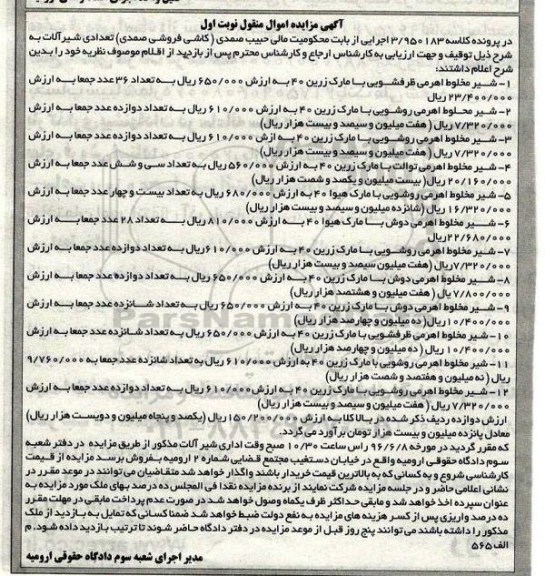 آگهی مزایده اموال منقول نوبت اول
در پرونده کلاسه ۳/۹۵۰۱۸۳ اجرایی از بابت محکومیت مالی حبیب صمدی (کاشی فروشی صمدی) تعدادی شیرآلات به
شرح ذیل توقیف و جهت ارزیابی به کارشناس ارجاع و کارشناس محترم پس از بازدید از اقلام موصوف نظریه خود را بدین
شرح اعلام داشتند:
۱- شیر مخلوط اهرمی ظرفشویی با مارک زرین ۴۰ به ارزش ۶۵۰/۰۰۰ ریال به تعداد ۳۶ عدد جمعا به ارزش
۲۳/۴۰۰/۰۰۰ ریال
۲- شیر مخلوط اهرمی روشویی با مارک زرین ۴۰ به ارزش ۶۱۰/۰۰۰ ریال به تعداد دوازده عدد جمعا به ارزش
۷/۳۲۰/۰۰۰ ریال (هفت میلیون و سیصد و بیست هزار ریال)
۳- شیر مخلوط اهرمی روشویی با مارک زرین ۴۰ به ارزش ۶۱۰/۰۰۰ ریال به تعداد دوازده عدد جمعا به ارزش
۷/۳۲۰/۰۰۰ ریال (هفت میلیون و سیصد و بیست هزار ریال)
۴- شیر مخلوط اهرمی توالت با مارک زرین ۴۰ به ارزش ۵۶۰/۰۰۰ ریال به تعداد سی و شش عدد جمعا به ارزش
۲۰/۱۶۰/۰۰۰ ریال (بیست میلیون و یکصد و شصت هزار ریال)
۵- شیر مخلوط اهرمی روشویی با مارک هیوا ۴۰ به ارزش ۶۸۰/۰۰۰ ریال به تعداد بیست و چهار عدد جمعا به ارزش
۱۶/۳۲۰/۰۰۰ ریال (شانزده میلیون و سیصد و بیست هزار ریال)
۶- شیر مخلوط اهرمی دوش با مارک هیوا ۴۰ به ارزش ۸۱۰/۰۰۰ ریال به تعداد ۲۸ عدد جمعا به ارزش
۲۲/۶۸۰/۰۰۰ ریال
۷- شیر مخلوط اهرمی روشویی با مارک زرین ۴۰ به ارزش ۶۱۰/۰۰۰ ریال به تعداد دوازده عدد جمعا به ارزش
۷/۳۲۰/۰۰۰ ریال (هفت میلیون سیصد و بیست هزار ریال)
۸- شیر مخلوط اهرمی دوش با مارک زرین ۴۰ به ارزش ۶۵۰/۰۰۰ ریال به تعداد دوازده عدد جمعا به ارزش
۷/۸۰۰/۰۰۰ ریال (هفت میلیون و هشتصد هزار ریال)
۹- شیر مخلوط اهرمی دوش با مارک زرین ۴۰ به ارزش ۶۵۰/۰۰۰ ریال به تعداد شانزده عدد جمعا به ارزش
۱۰/۴۰۰/۰۰۰ ریال (ده میلیون و چهارصد هزار ریال)
۱۰- شیر مخلوط اهرمی ظرفشویی با مارک زرین ۴۰ به ارزش ۶۵۰/۰۰۰ ریال به تعداد شانزده عدد جمعا به ارزش
۱۰/۴۰۰/۰۰۰ ریال (ده میلیون و چهارصد هزار ریال)
۱۱- شیر مخلوط اهرمی روشویی با مارک زرین ۴۰ به ارزش ۶۱۰/۰۰۰ ریال به تعداد شانزده عدد جمعا به ۹/۷۶۰/۰۰۰
ریال (نه میلیون و هفتصد و شصت هزار ریال)
۱۲- شیر مخلوط اهرمی روشویی با مارک زرین ۴۰ به ارزش ۶۱۰/۰۰۰ ریال به تعداد دوازده عدد جمعا به ارزش
۷/۳۲۰/۰۰۰ ریال (هفت میلیون و سیصد و بیست هزار ریال)
ارزش دوازده ردیف ذکر شده در بالا کلا به ارزش ۱۵۰/۲۰۰/۰۰۰ ریال (یکصد و پنجاه میلیون و دویست هزار ریال)
معادل پانزده میلیون و بیست هزار تومان برآورد می گردد.
که مقرر گردید در مورخه ۹۶/۶/۸ راس ساعت ۱۰/۳۰ صبح وقت اداری شیر آلات مذکور از طریق مزایده در دفتر شعبه
سوم دادگاه حقوقی ارومیه واقع در خیابان دستغیب مجتمع قضایی شماره ۲ ارومیه بفروش برسد مزایده از قیمت
کارشناسی شروع و به کسانی که به بالاترین قیمت خریدار باشند واگذار خواهد شد متقاضیان می توانند در موعد مقرر در
نشانی اعلامی حاضر و در جلسه مزایده شرکت نمایند از برنده مزایده نقدا فی المجلس ده درصد بهای ملک مورد مزایده به
عنوان سپرده اخذ خواهد شد و مابقی حداکثر ظرف یکماه وصول خواهد شد در صورت عدم پرداخت مابقی در مهلت مقرر
ده درصد واریزی پس از کسر هزینه های مزایده به نفع دولت ضبط خواهد شد ضمنا کسانی که تمایل به بازدید از ملک
مذکور را داشته باشند می توانند پنج روز قبل از موعد مزایده در دفتر دادگاه حاضر شوند تا ترتیب بازدید داده شود. م
الف ۵۶۵
مدیر اجرای شعبه سوم دادگاه حقوقی ارومیه